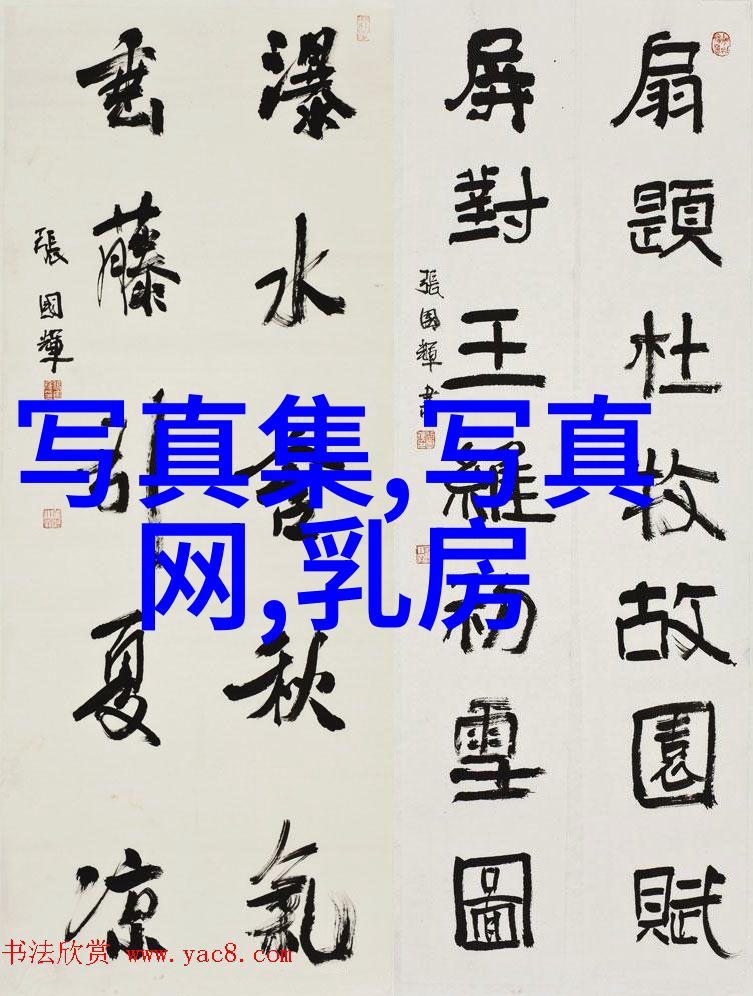 扇題杜牧故園賦
屏對王維初雪圖
張國輝書
瀑水含秋氣
垂藤引夏凉
張國輝
写真集,写真
网,乳房
书法欣赏 www.yac8.com